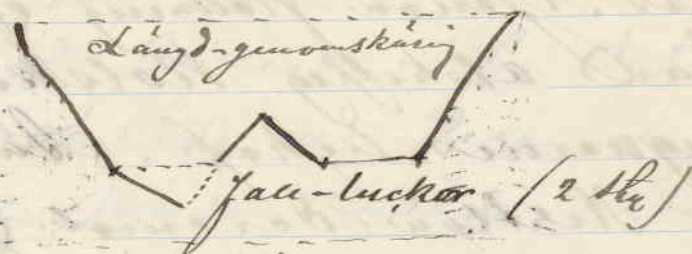 Längd-genomskärning
Fall-luckor (2 stk)